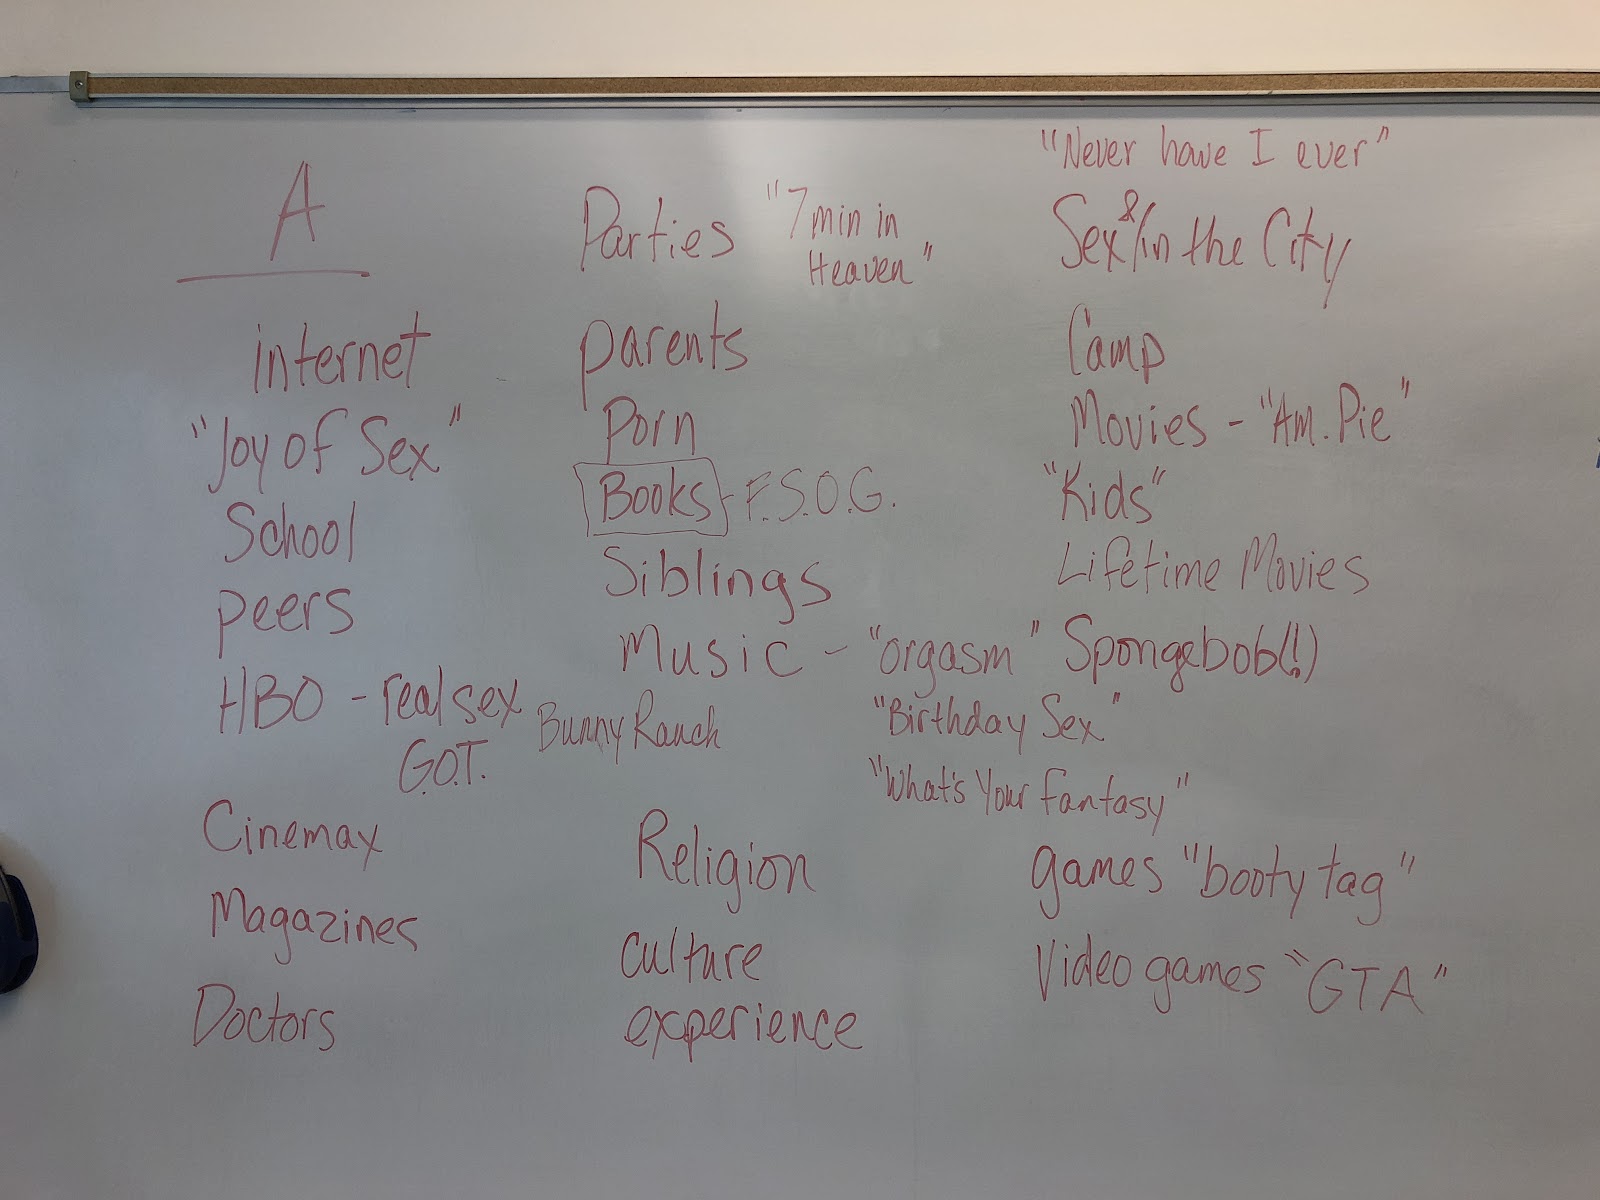 A
internet
"Joy of Sex"
School
peers
HBO - real sex
G.O.T.
Bunny Ranch
Cinemax
Magazines
Doctors
Parties "7 min in
Heaven"
parents
Porn
Books - F.S.O.G.
Siblings
Music - "orgasm"
"Birthday Sex"
"What's Your Fantasy"
Religion
culture
experience
"Never have I ever"
Sex &/in the City
Camp
Movies - "Am. Pie"
"Kids"
Lifetime Movies
Spongebob(!)
games "booty tag"
Video games "GTA"